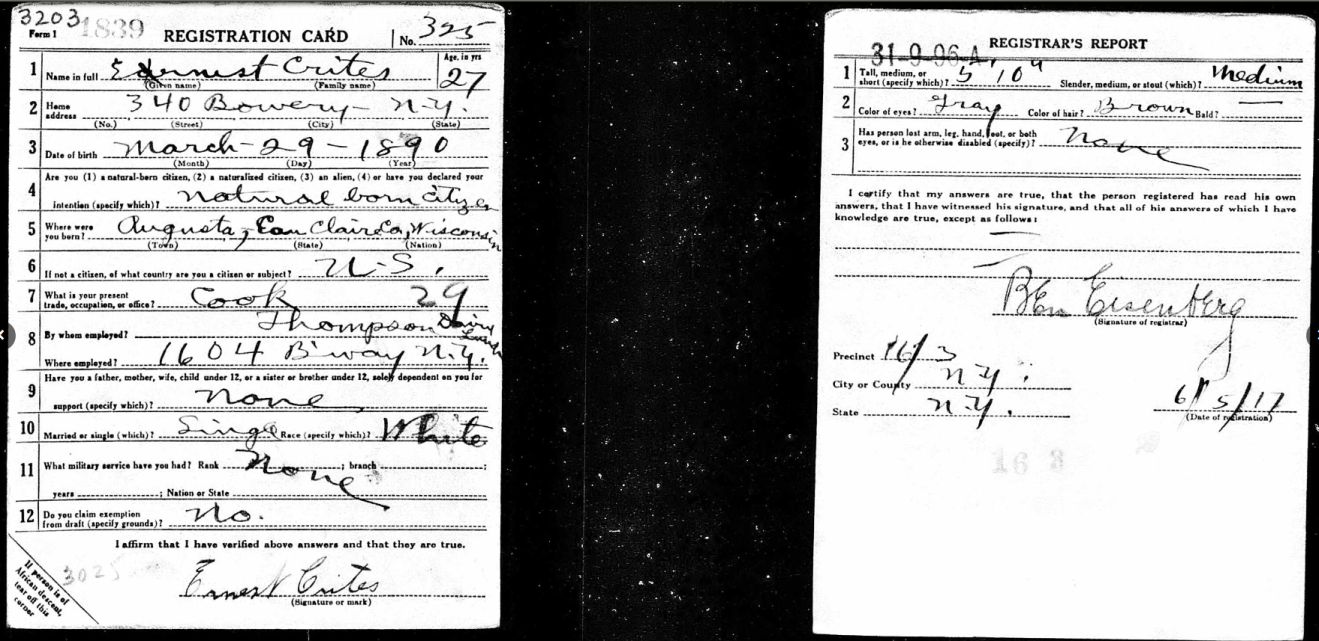 3203
1839
Form 1
REGISTRATION CARD
No. 325
1 Name in full Ernest Crites
(Given name) (Family name)
Age, in yrs
27
2 Home address 340 Bowery - N.Y.
(No.) (Street) (City) (State)
3 Date of birth March - 29 - 1890
(Month) (Day) (Year)
4 Are you (1) a natural-born citizen, (2) a naturalized citizen, (3) an alien, (4) or have you declared your
intention (specify which)? natural born citizen
5 Where were you born? Augusta, Eau Claire Co, Wisconsin
(Town) (State) (Nation)
6 If not a citizen, of what country are you a citizen or subject? U.S.
7 What is your present trade, occupation, or office? Cook 29
8 By whom employed? Thompson Dairy Lunch
Where employed? 1604 B'way N.Y.
9 Have you a father, mother, wife, child under 12, or a sister or brother under 12, solely dependent on you for
support (specify which)? none
10 Married or single (which)? Single Race (specify which)? White
11 What military service have you had? Rank None ; branch ;
years ; Nation or State
12 Do you claim exemption from draft (specify grounds)? No.
I affirm that I have verified above answers and that they are true.
3025
Ernest Crites
(Signature or mark)
If person is of
African descent,
tear off this
corner
31-9-96-A.
REGISTRAR'S REPORT
1 Tall, medium, or short (specify which)? 5' 10" Slender, medium, or stout (which)? Medium
2 Color of eyes? Gray Color of hair? Brown Bald? —
3 Has person lost arm, leg, hand, foot, or both
eyes, or is he otherwise disabled (specify)? None
I certify that my answers are true, that the person registered has read his own
answers, that I have witnessed his signature, and that all of his answers of which I have
knowledge are true, except as follows:
Ben Eisenberg
(Signature of registrar)
Precinct 16/3
City or County N.Y.
State N.Y.
6/5/17
(Date of registration)
16 3